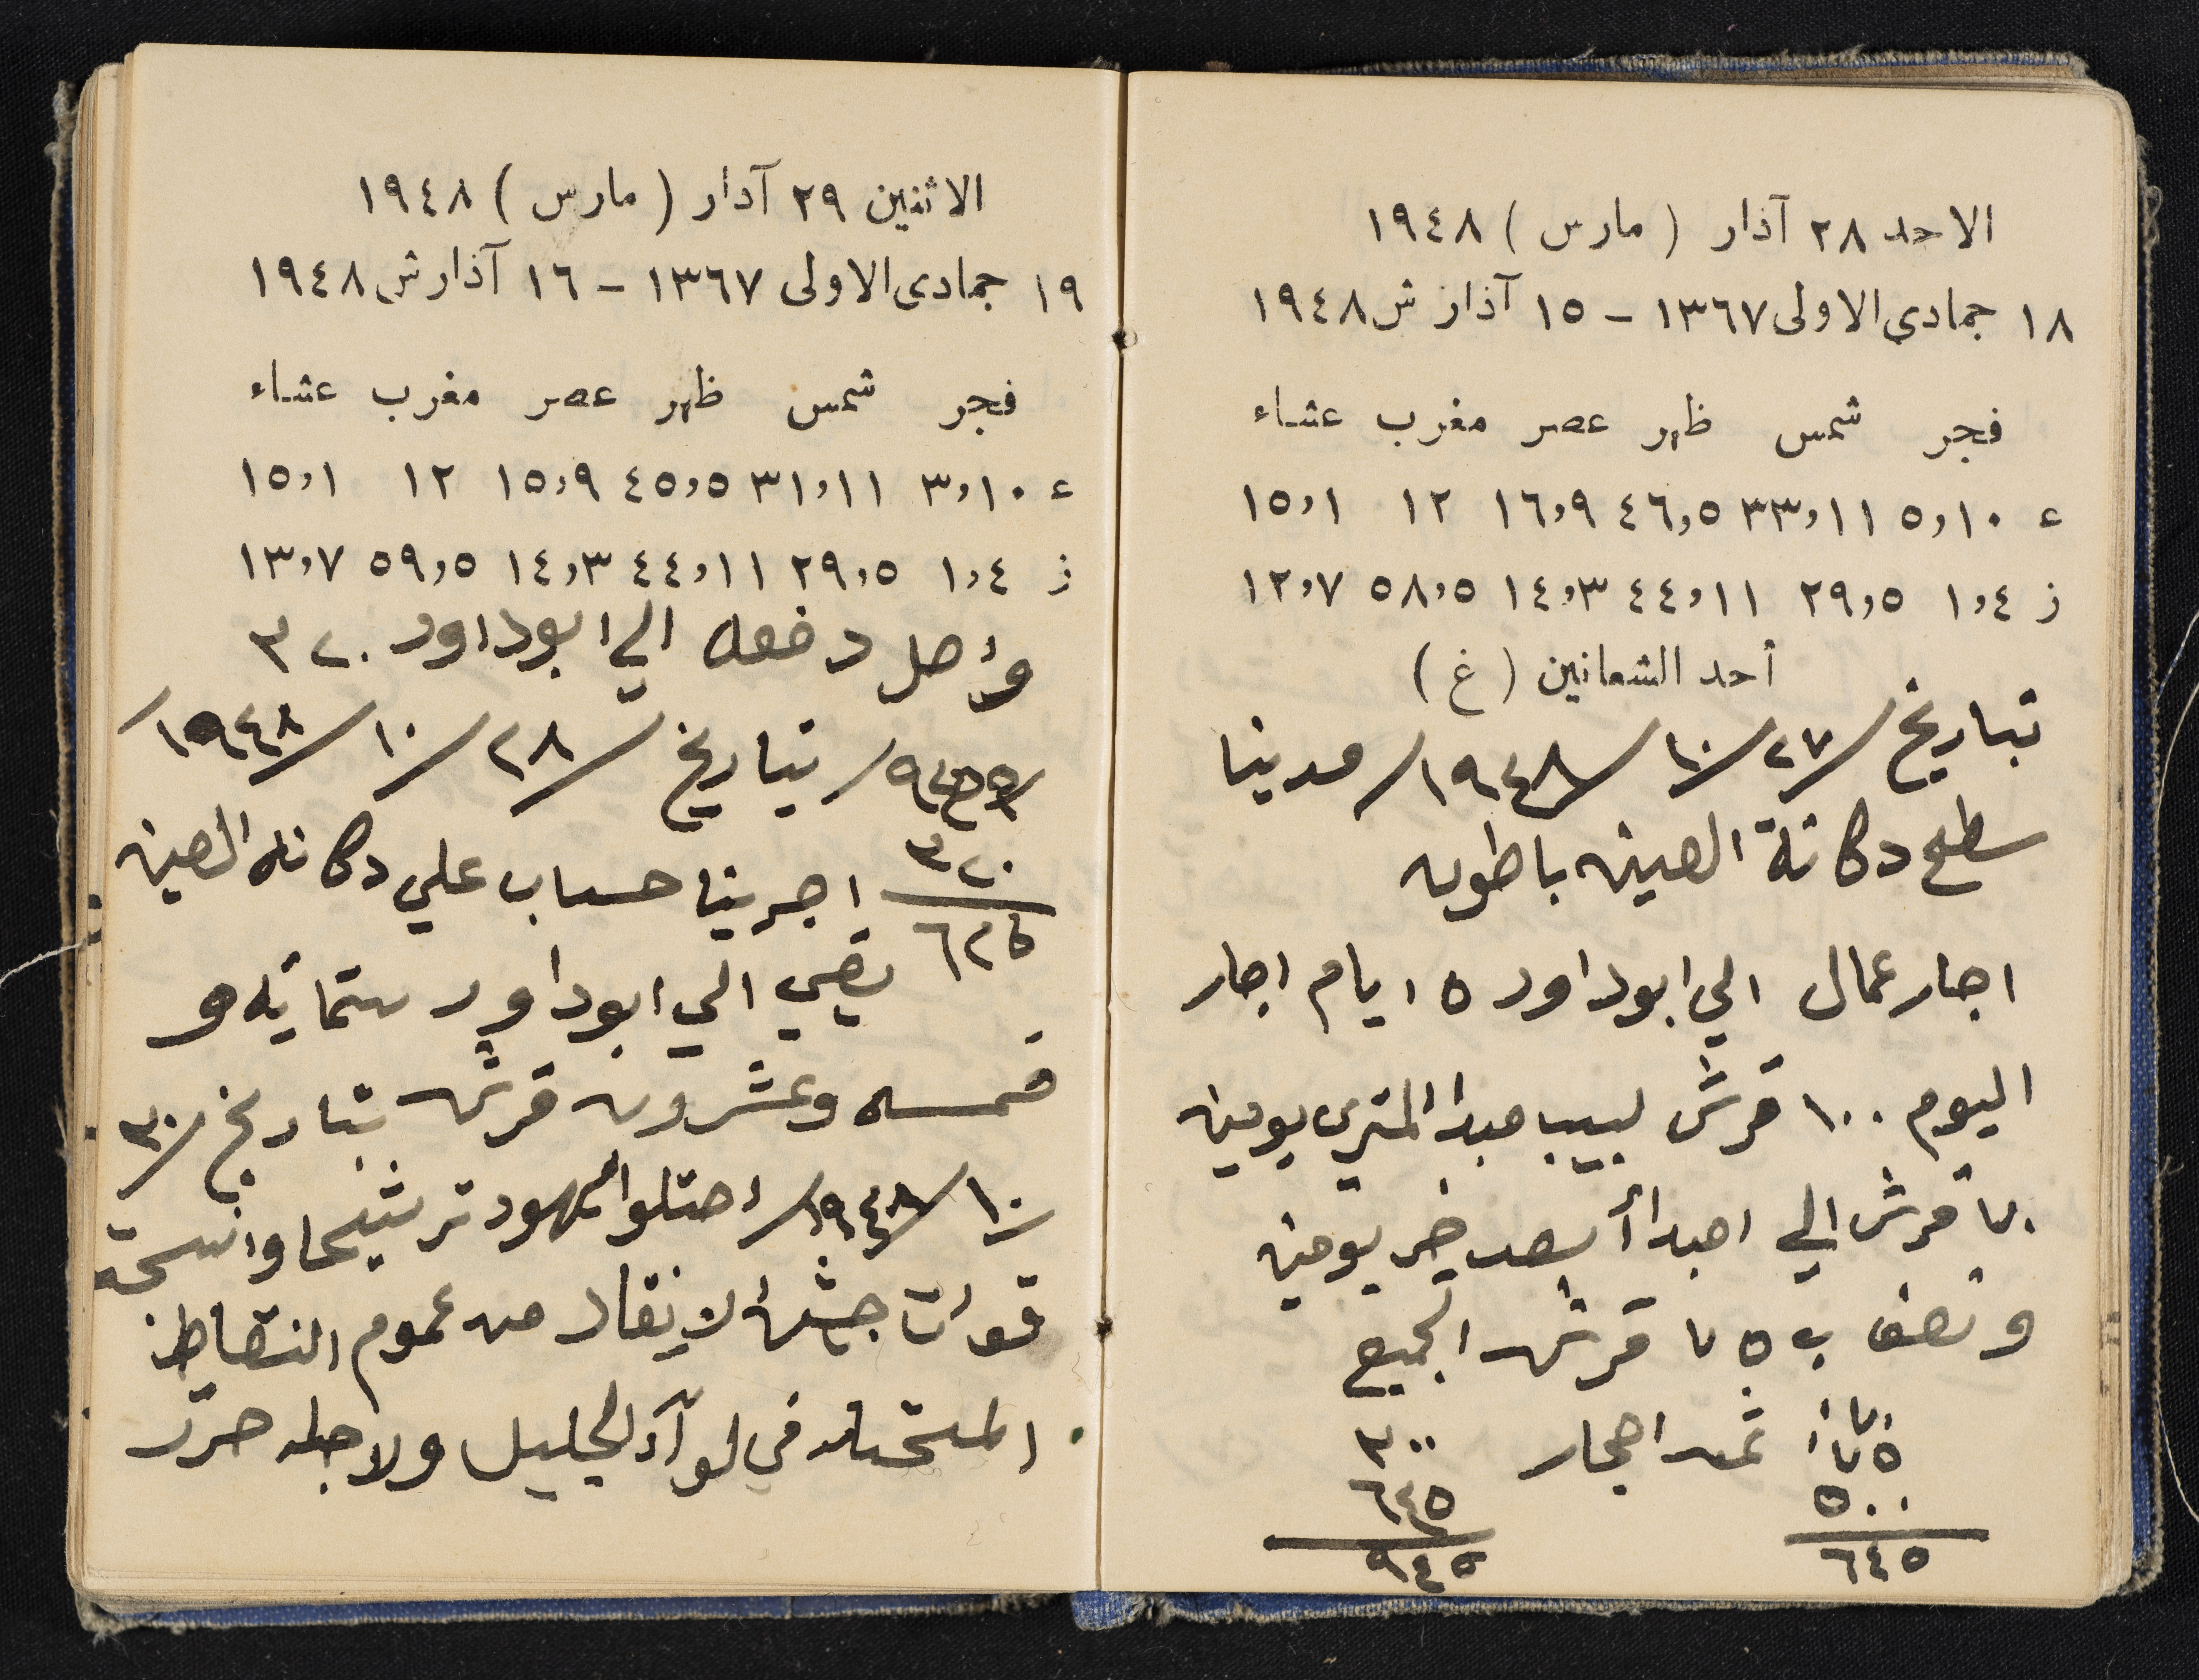 الاحد ٢٨ آذار (مارس) ١٩٤٨
١٨ جمادى الاولى ١٣٦٧ - ١٥ آذار ش ١٩٤٨
فجر شمس ظهر عصر مغرب عشاء
ع ٥,١٠ ٣٣,١١ ٤٦,٥ ١٦,٩ ١٢ ١٥,١
ز ١,٤ ٢٩,٥ ٤٤,١١ ١٤,٣ ٥٨,٥ ١٢,٧
أحد الشعانين (غ)
تباريخ /٢٧/١٠/١٩٤٨/ مدينا
سطح دكانة العين باطون
اجار عمال الي ابوداود ٥ ايام اجار
اليوم ١٠٠ قرش لبيب يومين
٧٠ قرش الي يومين
ونصف ب ٧٥ قرش الجميع
٧٠
٧٥ ثمن احجار ٣٠٠
٥٠٠ ٦٤٥
٦٤٥ ٩٤٥
الاثنين ٢٩ آدار (مارس) ١٩٤٨
١٩ جمادى الاولى ١٣٦٧ - ١٦ آذار ش ١٩٤٨
فجر شمس ظهر عصر مغرب عشاء
ع ٣,١٠ ٣١,١١ ٤٥,٥ ١٥,٩ ١٢ ١٥,١
ز ١,٤ ٢٩,٥ ٤٤,١١ ١٤,٣ ٥٩,٥ ١٣,٧
وأصل دفعه الي ابوداود ٣٢٠
٩٤٥/ تباريخ /٢٨/١٠/١٩٤٨/
٣٢٠ اجرينا حساب علي دكانه العين
٦٢٥ بقي الي ابوداود ستمائه و
خمسه وعشرون قرش تباريخ /٣٠
/١٠/١٩٤٨/ احتلوا اليهود ترشيحا وانسحبة
قوات جيش الانقاد من عموم النقاط
المحتله في لوآء الجليل ولاجله حرر